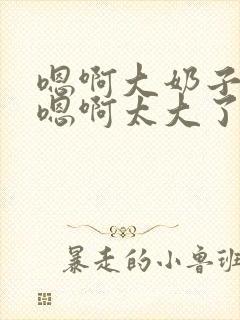 嗯啊大奶子
嗯啊太大了
暴走的小鲁班